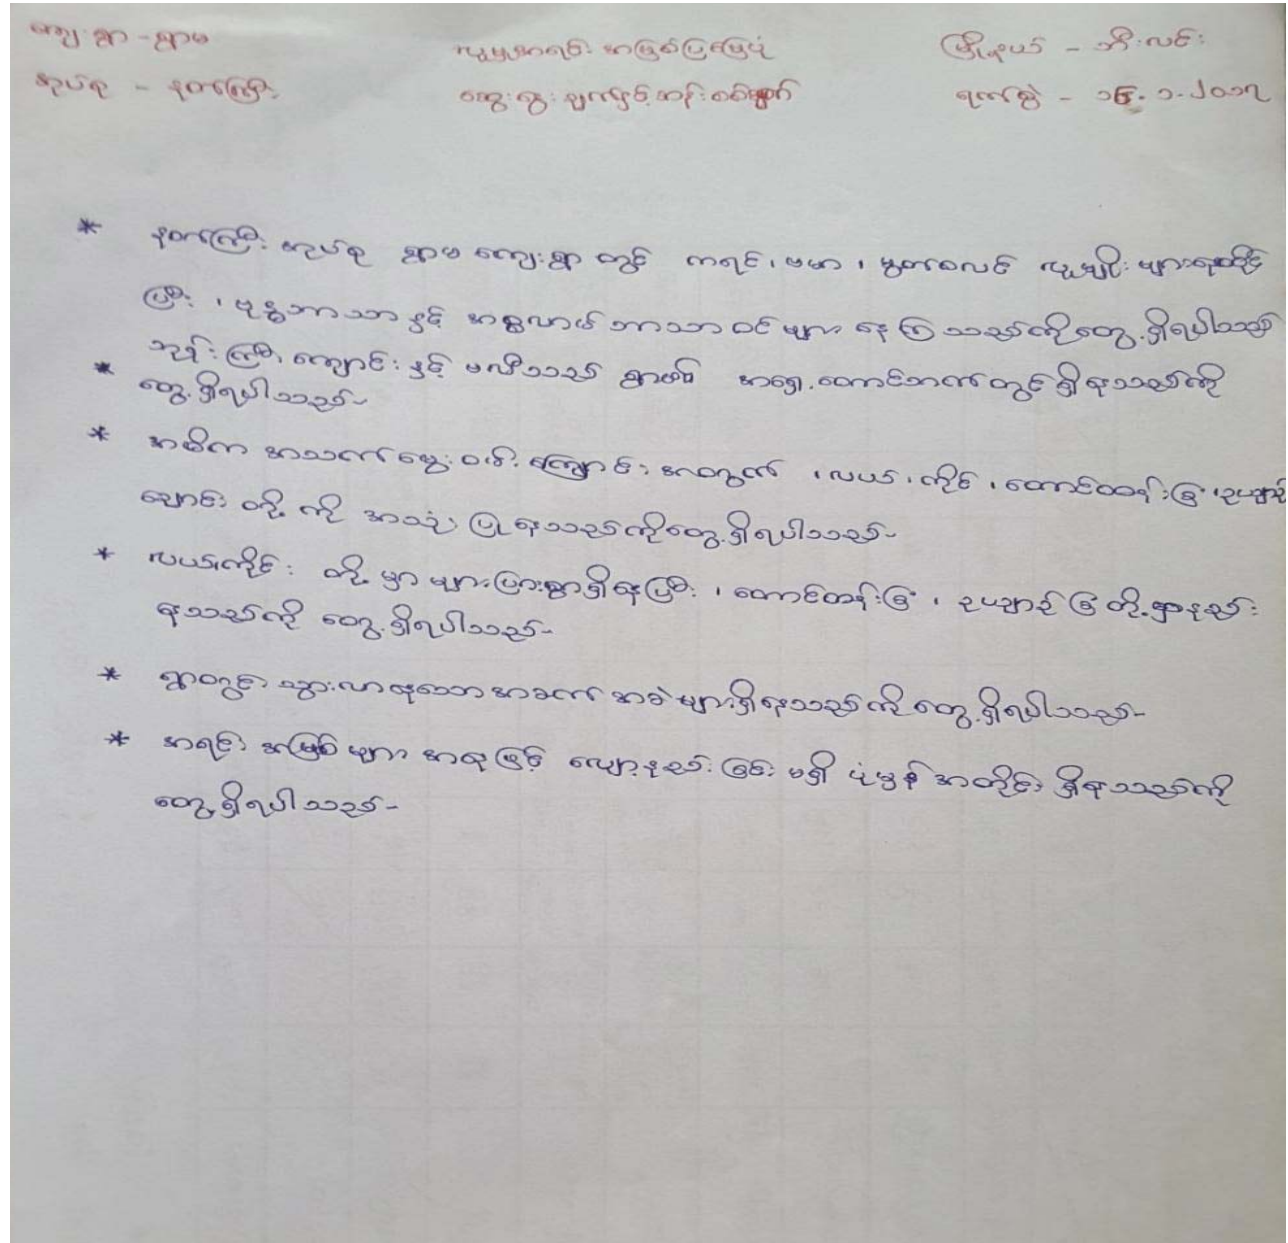 ကျေးရွာ - ရွာမ
လူမှုအရင်းအမြစ်ပြမြေပုံ
မြို့နယ် - ဘီးလင်း
အုပ်စု - နတ်ကြီး
ဆွေးနွေးချက်နှင့်ဆန်းစစ်ချက်
ရက်စွဲ - ၁၆.၁.၂၀၁၇
* နတ်ကြီး အုပ်စု ရွာမ ကျေးရွာ တွင် ကရင်၊ ဗမာ ၊ မွတ်စလင် လူမျိုး များနေထိုင်
ပြီး ၊ ဗုဒ္ဓဘာသာ နှင့် အစ္စလာမ် ဘာသာ ဝင် များ နေ ကြ သည်ကိုတွေ့ရှိရပါသည်
* ဘုန်းကြီး ကျောင်း နှင့် ဗလီသည် ရွာ၏ အရှေ့တောင်ဘက်တွင်ရှိနေသည်ကို
တွေ့ရှိရပါသည်-
* အဓိက အသက်မွေးဝမ်းကျောင်း အတွက် ၊ လယ် ၊ ကိုင်း ၊ တောင်တန်းခြံ ၊ ဥယျာဉ်
ချောင်း တို့ ကို အသုံးပြု နေသည်ကိုတွေ့ရှိရပါသည်-
* လယ်၊ကိုင်း တို့ မှာ များပြားစွာရှိနေပြီး ၊ တောင်တန်းခြံ ၊ ဥယျာဉ် ခြံ တို့မှာနည်း
နေသည်ကို တွေ့ရှိရပါသည်-
* ရွာတွင်း သွားလာနေသော အခက် အခဲ များရှိနေသည်ကို တွေ့ရှိရပါသည်-
* အရင်း အမြစ် များ အနေဖြင့် လျော့နည်း ခြင်း မရှိ ပုံမှန် အတိုင်း ရှိနေသည်ကို
တွေ့ရှိရပါသည်-